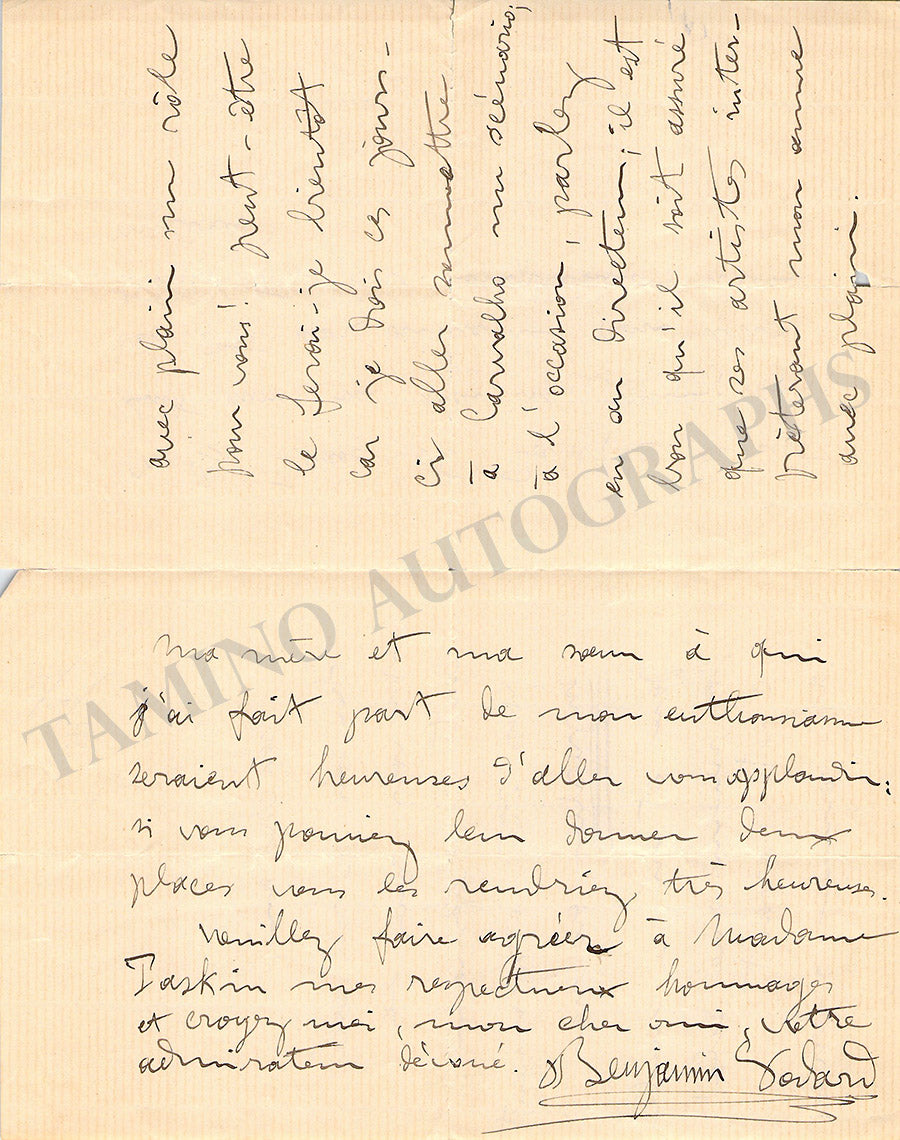 avec plaisir un rôle
pour vous! peut-être
le ferai-je bientôt
car je dois ces jours-
ci aller soumettre
à Carvalho un scénario;
à l'occasion, parlez
en au directeur; il est
bon qu'il soit assuré
que ses artistes inter-
prèteront mon œuvre
avec plaisir.
Ma mère et ma sœur à qui
j'ai fait part de mon enthousiasme
seraient heureuses d'aller vous applaudir:
si vous pouviez leur donner deux
places vous les rendriez très heureuses.
Veuillez faire agréer à Madame
Taskin mes respectueux hommages
et croyez moi, mon cher ami, votre
admirateur dévoué. Benjamin Godard
TAMINO AUTOGRAPHS